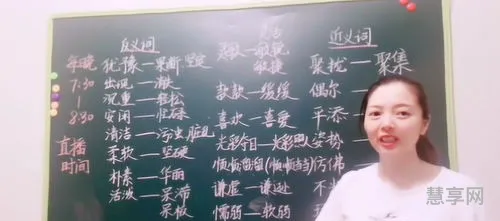 反义词
每晚
7:30
8:30
直播
时间
犹豫—果断 坚定
出现—消失
沉重—轻松
安闲—忙碌
清洁—污浊 脏乱
柔软—坚硬
朴素—华丽
活泼—呆滞
呆板
灵敏—敏锐
敏捷
款款—缓缓
喜欢—喜爱
光彩夺目—光彩照人
谦虚—谦逊
懦弱—软弱
近义词
聚拢—聚集
偶尔
平添
姿势
仿佛
慧享网